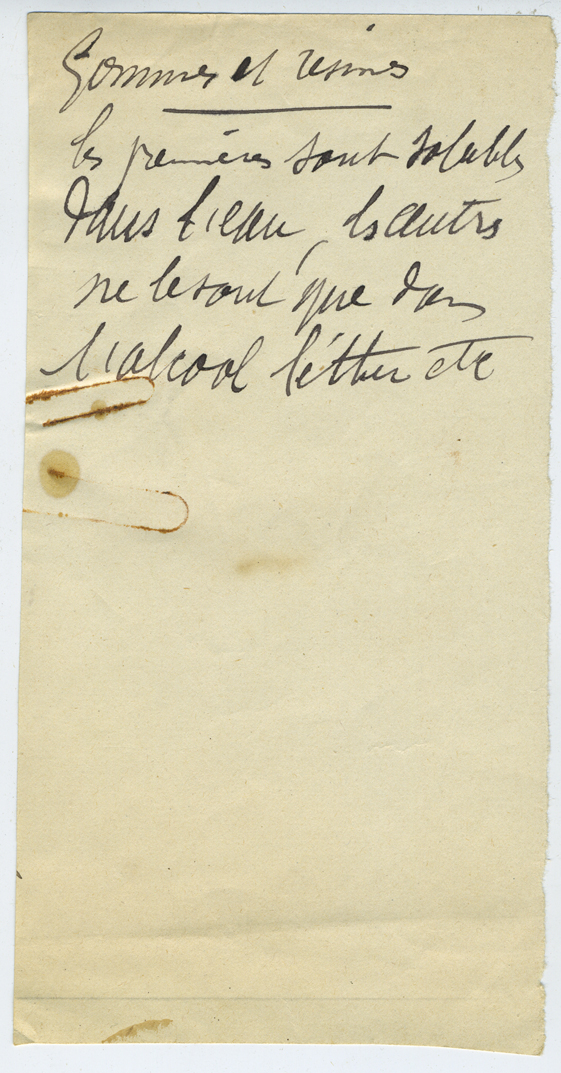 Gommes et résines
les premières sont solubles
dans l'eau, les autres
ne le sont que dans
l'alcool l'éther etc